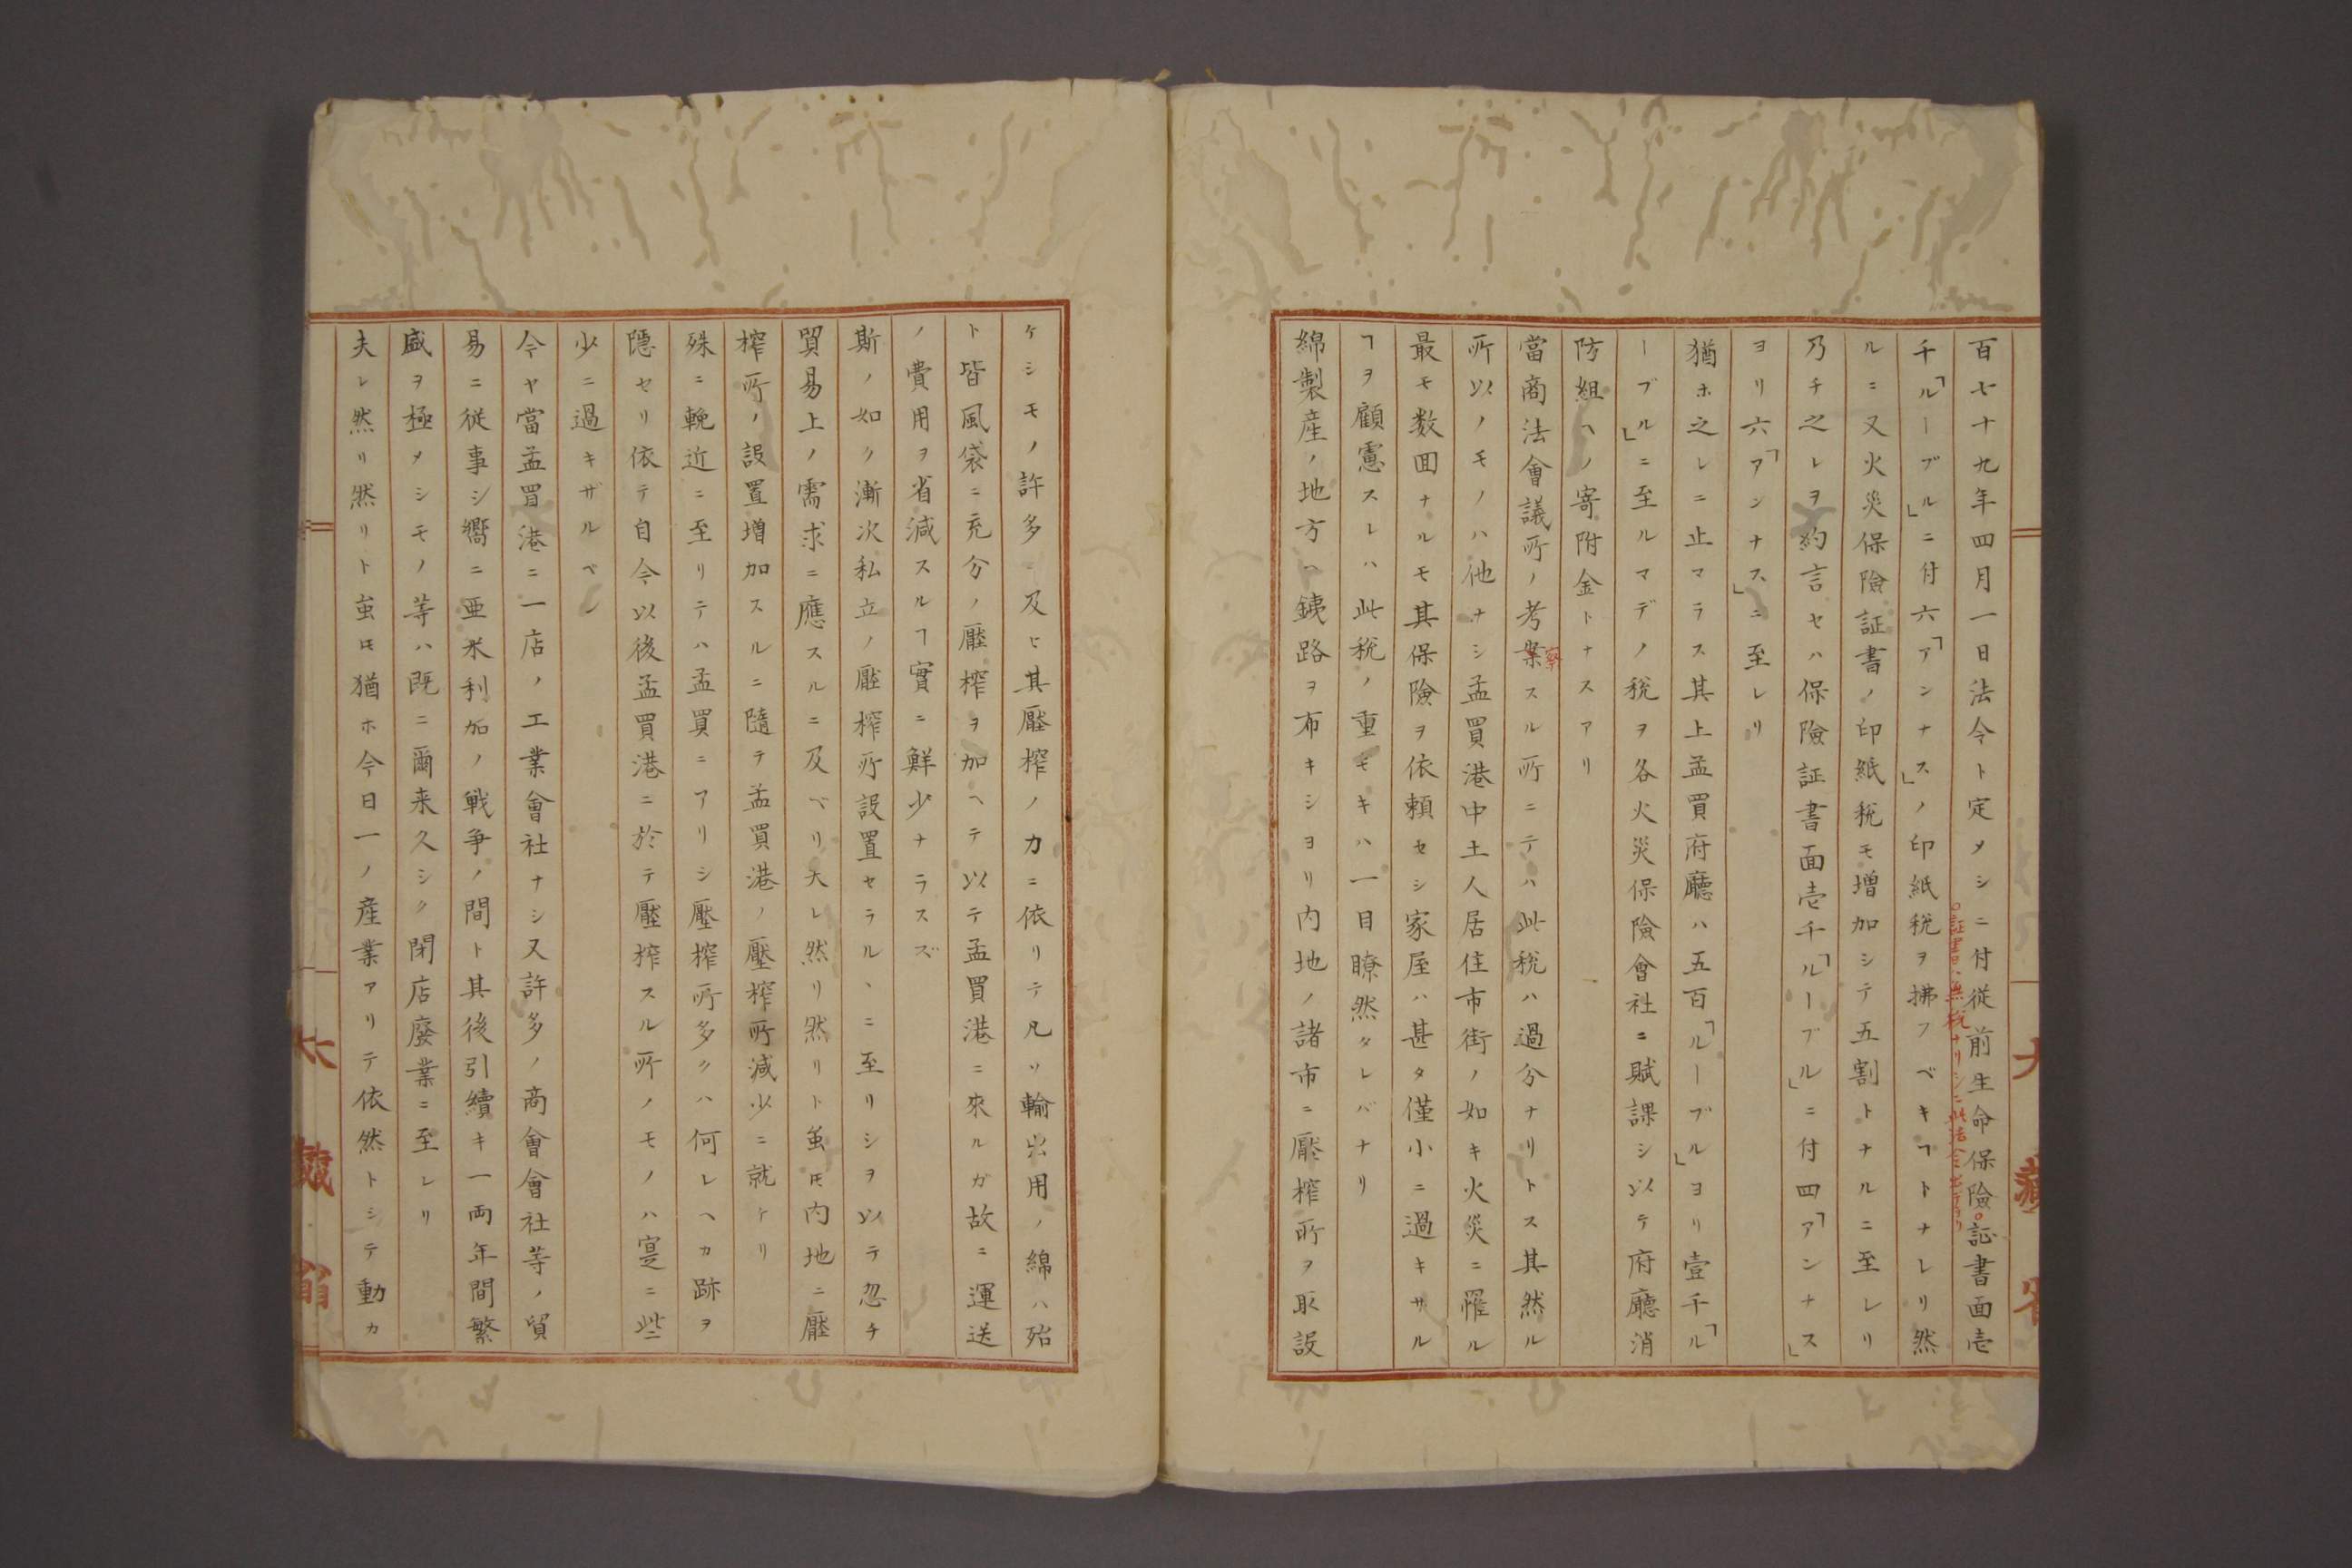 百七十九年四月一日法令ト定メシニ付從前生命保險○証書面壱
○証書ハ無税ナリシニ此法令出デヨリ
千「ルーブル」ニ付六「アンナス」ノ印紙税ヲ拂フベキヿトナレリ然
ルニ又火災保險証書ノ印紙税モ增加シテ五割トナルニ至レリ
乃チ之レヲ約言セハ保險証書面壱千「ルーブル」ニ付四「アンナス」
ヨリ六「アンナス」ニ至レリ
猶ホ之レニ止マラス其上孟買府廳ハ五百「ルーブル」ヨリ壹千「ル
ーブル」ニ至ルマデノ税ヲ各火災保險會社ニ賦課シ以テ府廳消
防組ヘノ寄附金トナスアリ
當商法會議所ノ考案スル所ニテハ此税ハ過分ナリトス其然ル
察
所以ノモノハ他ナシ孟買港中土人居住市街ノ如キ火災ニ罹ル
最モ数回ナルモ其保險ヲ依頼セシ家屋ハ甚タ僅小ニ過キサル
ヿヲ顧慮スレハ此税ノ重モキハ一目瞭然タレバナリ
綿製産ノ地方ハ銕路ヲ布キシヨリ内地ノ諸市ニ壓榨所ヲ取設
ケシモノ許多ニ及ヒ其壓榨ノカニ依リテ凡ソ輸出用ノ綿ハ殆
ト皆風袋ニ充分ノ壓榨ヲ加ヘテ以テ孟買港ニ來ルガ故ニ運送
ノ費用ヲ省減スルヿ實ニ鮮少ナラスズ
斯ノ如ク漸次私立ノ壓榨所設置セラルヽニ至リシヲ以テ忽チ
貿易上ノ需求ニ應スルニ及ベリ夫レ然リ然リト虽𪜈内地ニ壓
榨所ノ設置増加スルニ隨テ孟買港ノ壓榨所減少ニ就ケリ
殊ニ輓近ニ至リテハ孟買ニアリシ壓榨所多クハ何レヘカ跡ヲ
隱セリ依テ自今以後孟買港ニ於テ壓榨スル所ノモノハ寔ニ些
少ニ過キザルベシ
今ヤ當孟買港ニ一店ノ工業會社ナシ又許多ノ商會會社等ノ貿
易ニ従事シ嚮ニ亜米利加ノ戦争ノ間ト其後引續キ一両年間繁
盛ヲ極メシモノ等ハ既ニ爾来久シク閉店廢業ニ至レリ
夫レ然リ然リト虽𪜈猶ホ今日一ノ産業アリテ依然トシテ動カ
大藏省
大藏省